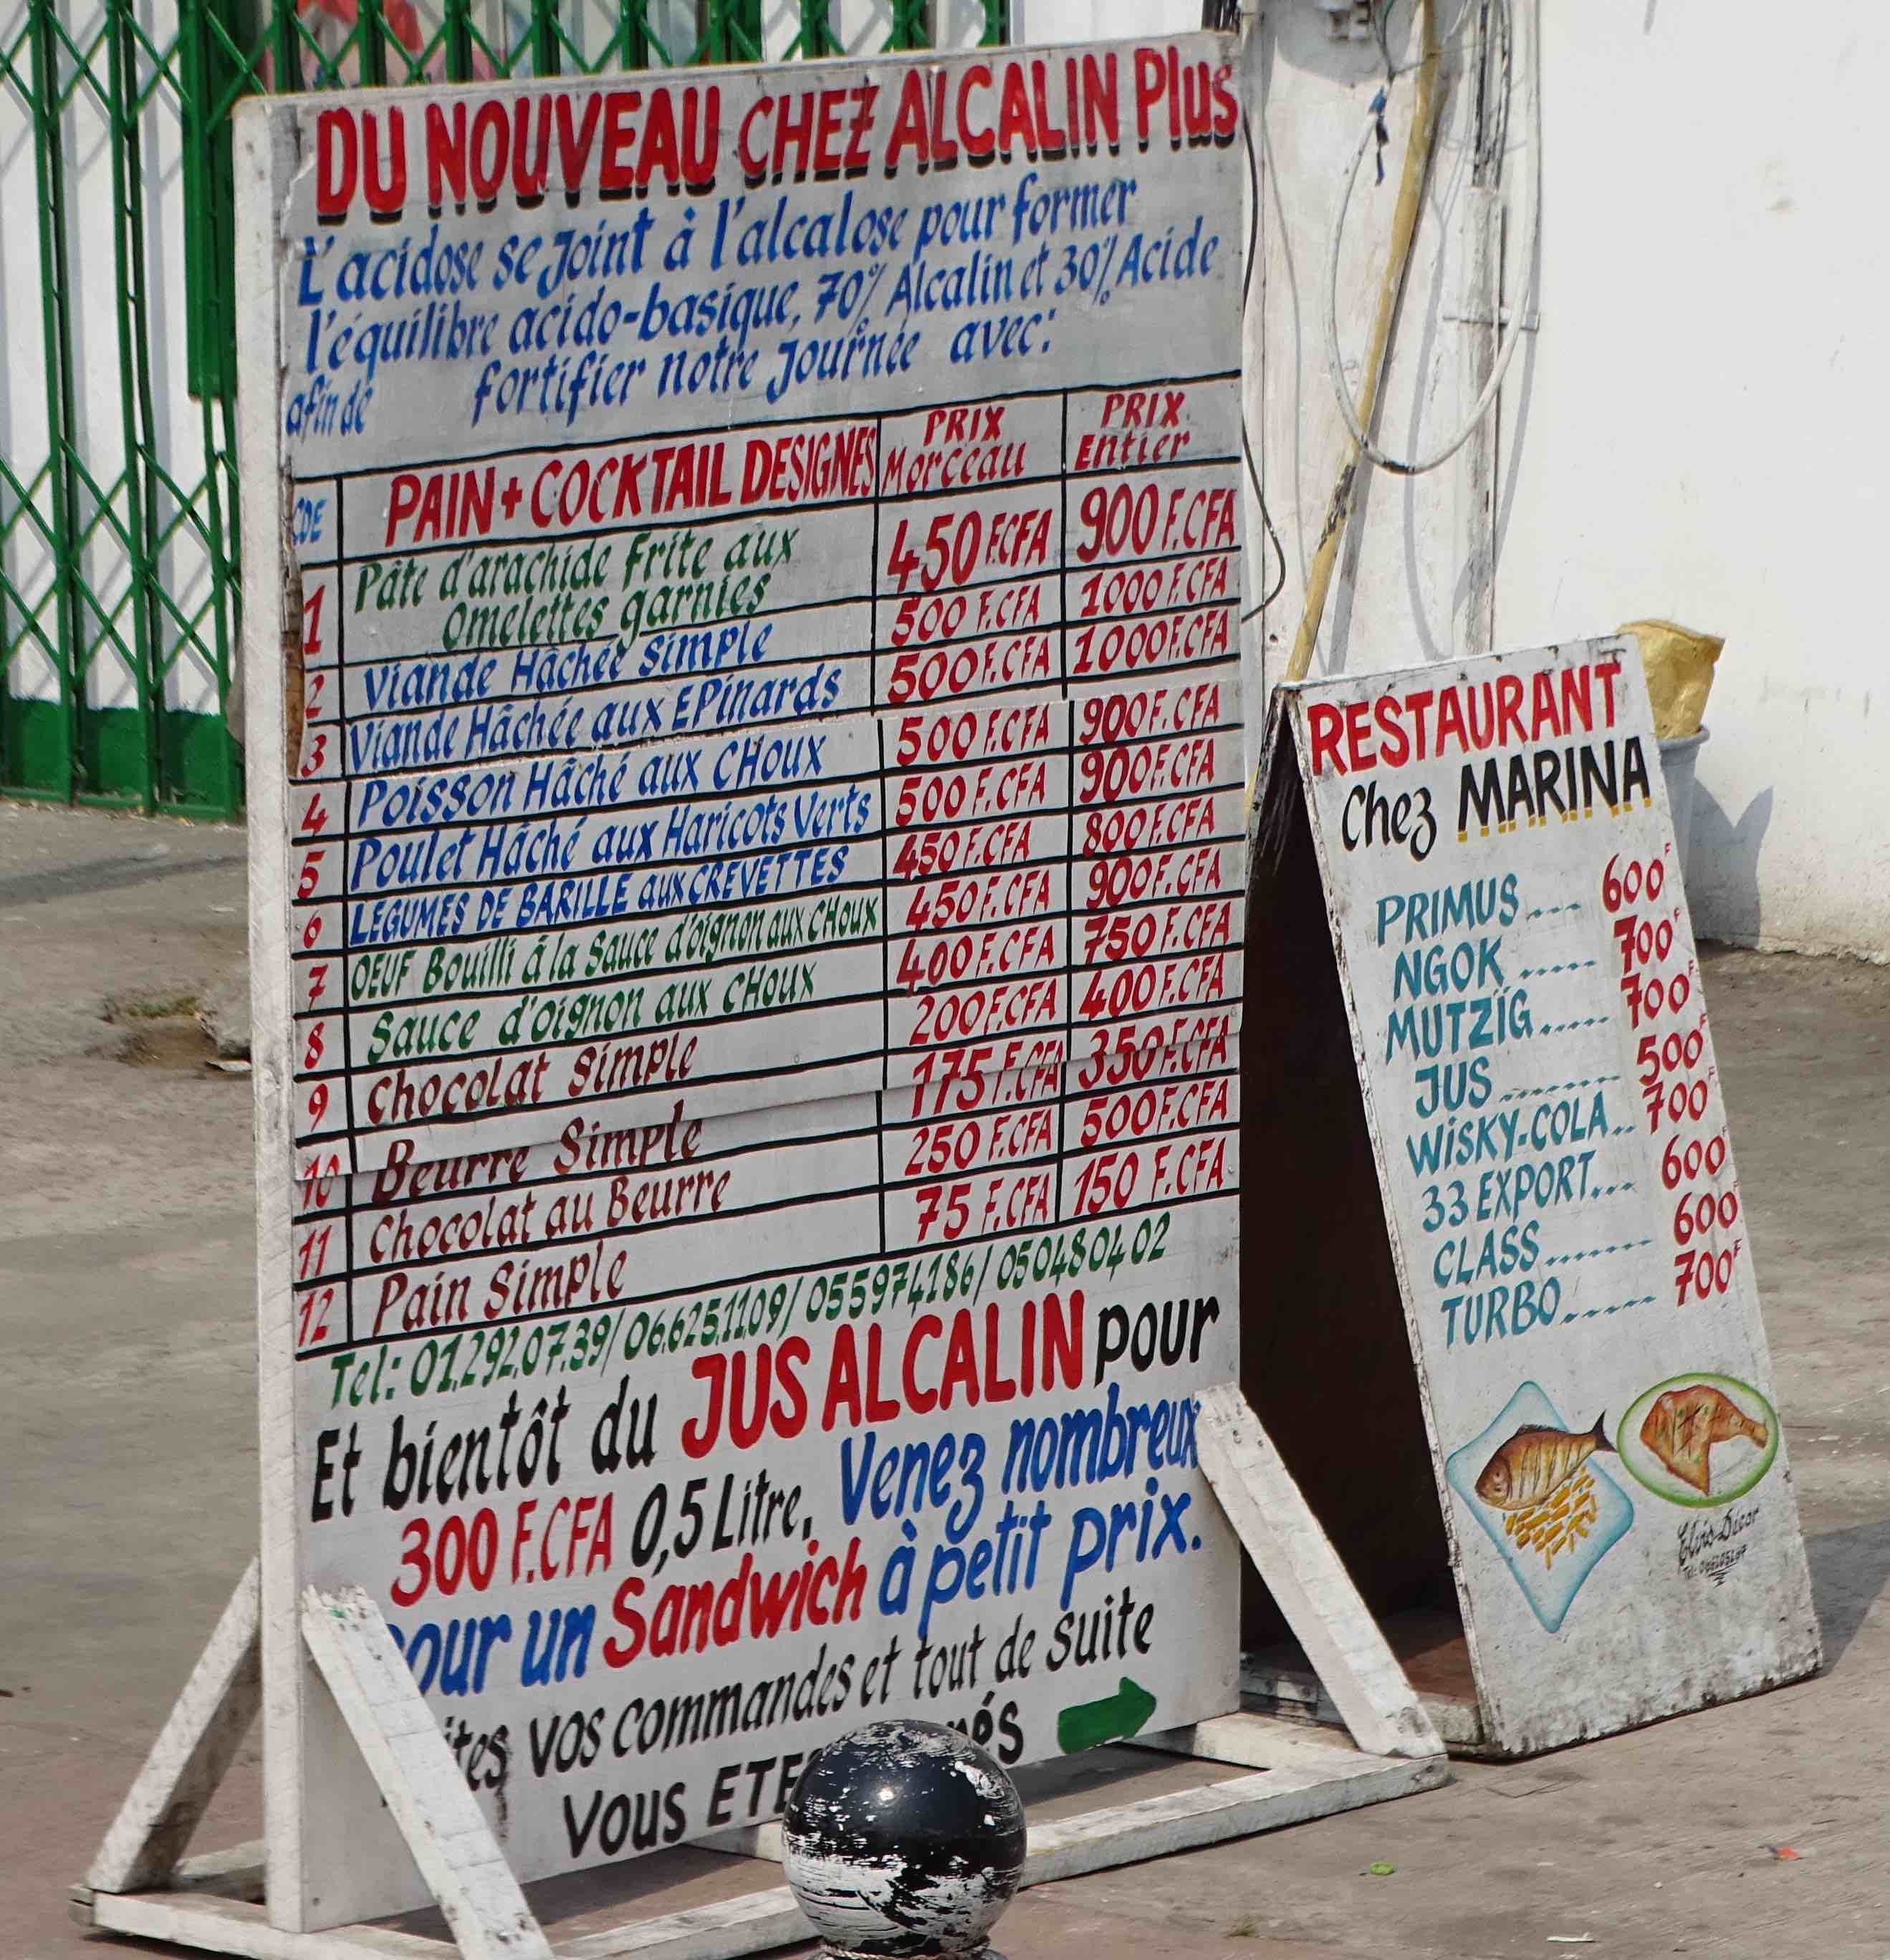 DU NOUVEAU CHEZ ALCALIN Plus
L'acidose se Joint à l'alcalose pour former
l'équilibre acido-basique, 70% Alcalin et 30% Acide
afin de fortifier notre Journée avec:
CDE PAIN + COCKTAIL DESIGNES PRIX Morceau PRIX Entier
1 Pâte d'arachide Frite aux omelettes garnies 450 F.CFA 900 F.CFA
2 Viande Hâchée Simple 500 F.CFA 1000 F.CFA
3 Viande Hâchée aux EPinards 500 F.CFA 1000 F.CFA
4 Poisson Hâché aux CHoux 500 F.CFA 900 F.CFA
5 Poulet Hâché aux Haricots Verts 500 F.CFA 900 F.CFA
6 LEGUMES DE BARILLE aux CREVETTES 450 F.CFA 800 F.CFA
7 OEUF Bouilli à la Sauce d'oignon aux CHoux 450 F.CFA 900 F.CFA
8 Sauce d'oignon aux CHoux 400 F.CFA 750 F.CFA
9 Chocolat Simple 200 F.CFA 400 F.CFA
10 Beurre Simple 175 F.CFA 350 F.CFA
11 Chocolat au Beurre 250 F.CFA 500 F.CFA
12 Pain Simple 75 F.CFA 150 F.CFA
Tel: 01.292.07.39/ 06.625.11.09/ 055974186/ 050480402
Et bientôt du JUS ALCALIN pour
300 F.CFA 0,5 Litre, Venez nombreux
pour un Sandwich à petit prix.
vos commandes et tout de suite
VOUS
RESTAURANT
Chez MARINA
PRIMUS... 600F
NGOK..... 700F
MUTZIG..... 700F
JUS....... 500F
WISKY-COLA.. 700F
33 EXPORT... 600F
CLASS....... 600F
TURBO..... 700F
Elvis Décor